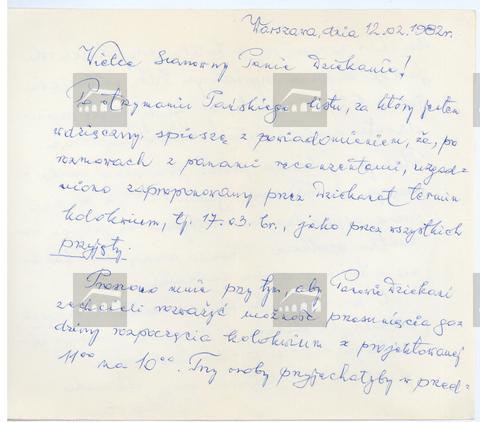 Warszawa, dnia 12.02.1982r.
Wielce Szanowny Panie Dziekanie!
Po otrzymaniu Pańskiego listu, za który jestem
wdzięczny, spieszę z powiadomieniem, że, po
rozmowach z panami recenzentami, uzgod-
niono zaproponowany przez Dziekanat termin
kolokwium, tj. 17.03. br., jako przez wszystkich
przyjęty.
Proszono mnie przy tym, aby Panowie Dziekani
zechcieli rozważyć możność przesunięcia go-
dziny rozpoczęcia kolokwium z projektowanej
11⁰⁰ na 10⁰⁰. Trzy osoby przyjechałyby w przed-